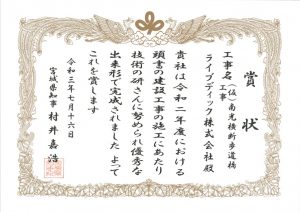 賞状
工事名 (仮)南光横断歩道橋
工事
ライブディック株式会社殿
貴社は令和二年度における
頭書の建設工事の施工にあたり
技術の研さんに努められ優秀な
出来形で完成されました よって
これを賞します
令和三年七月十六日
宮城県知事 村井嘉浩